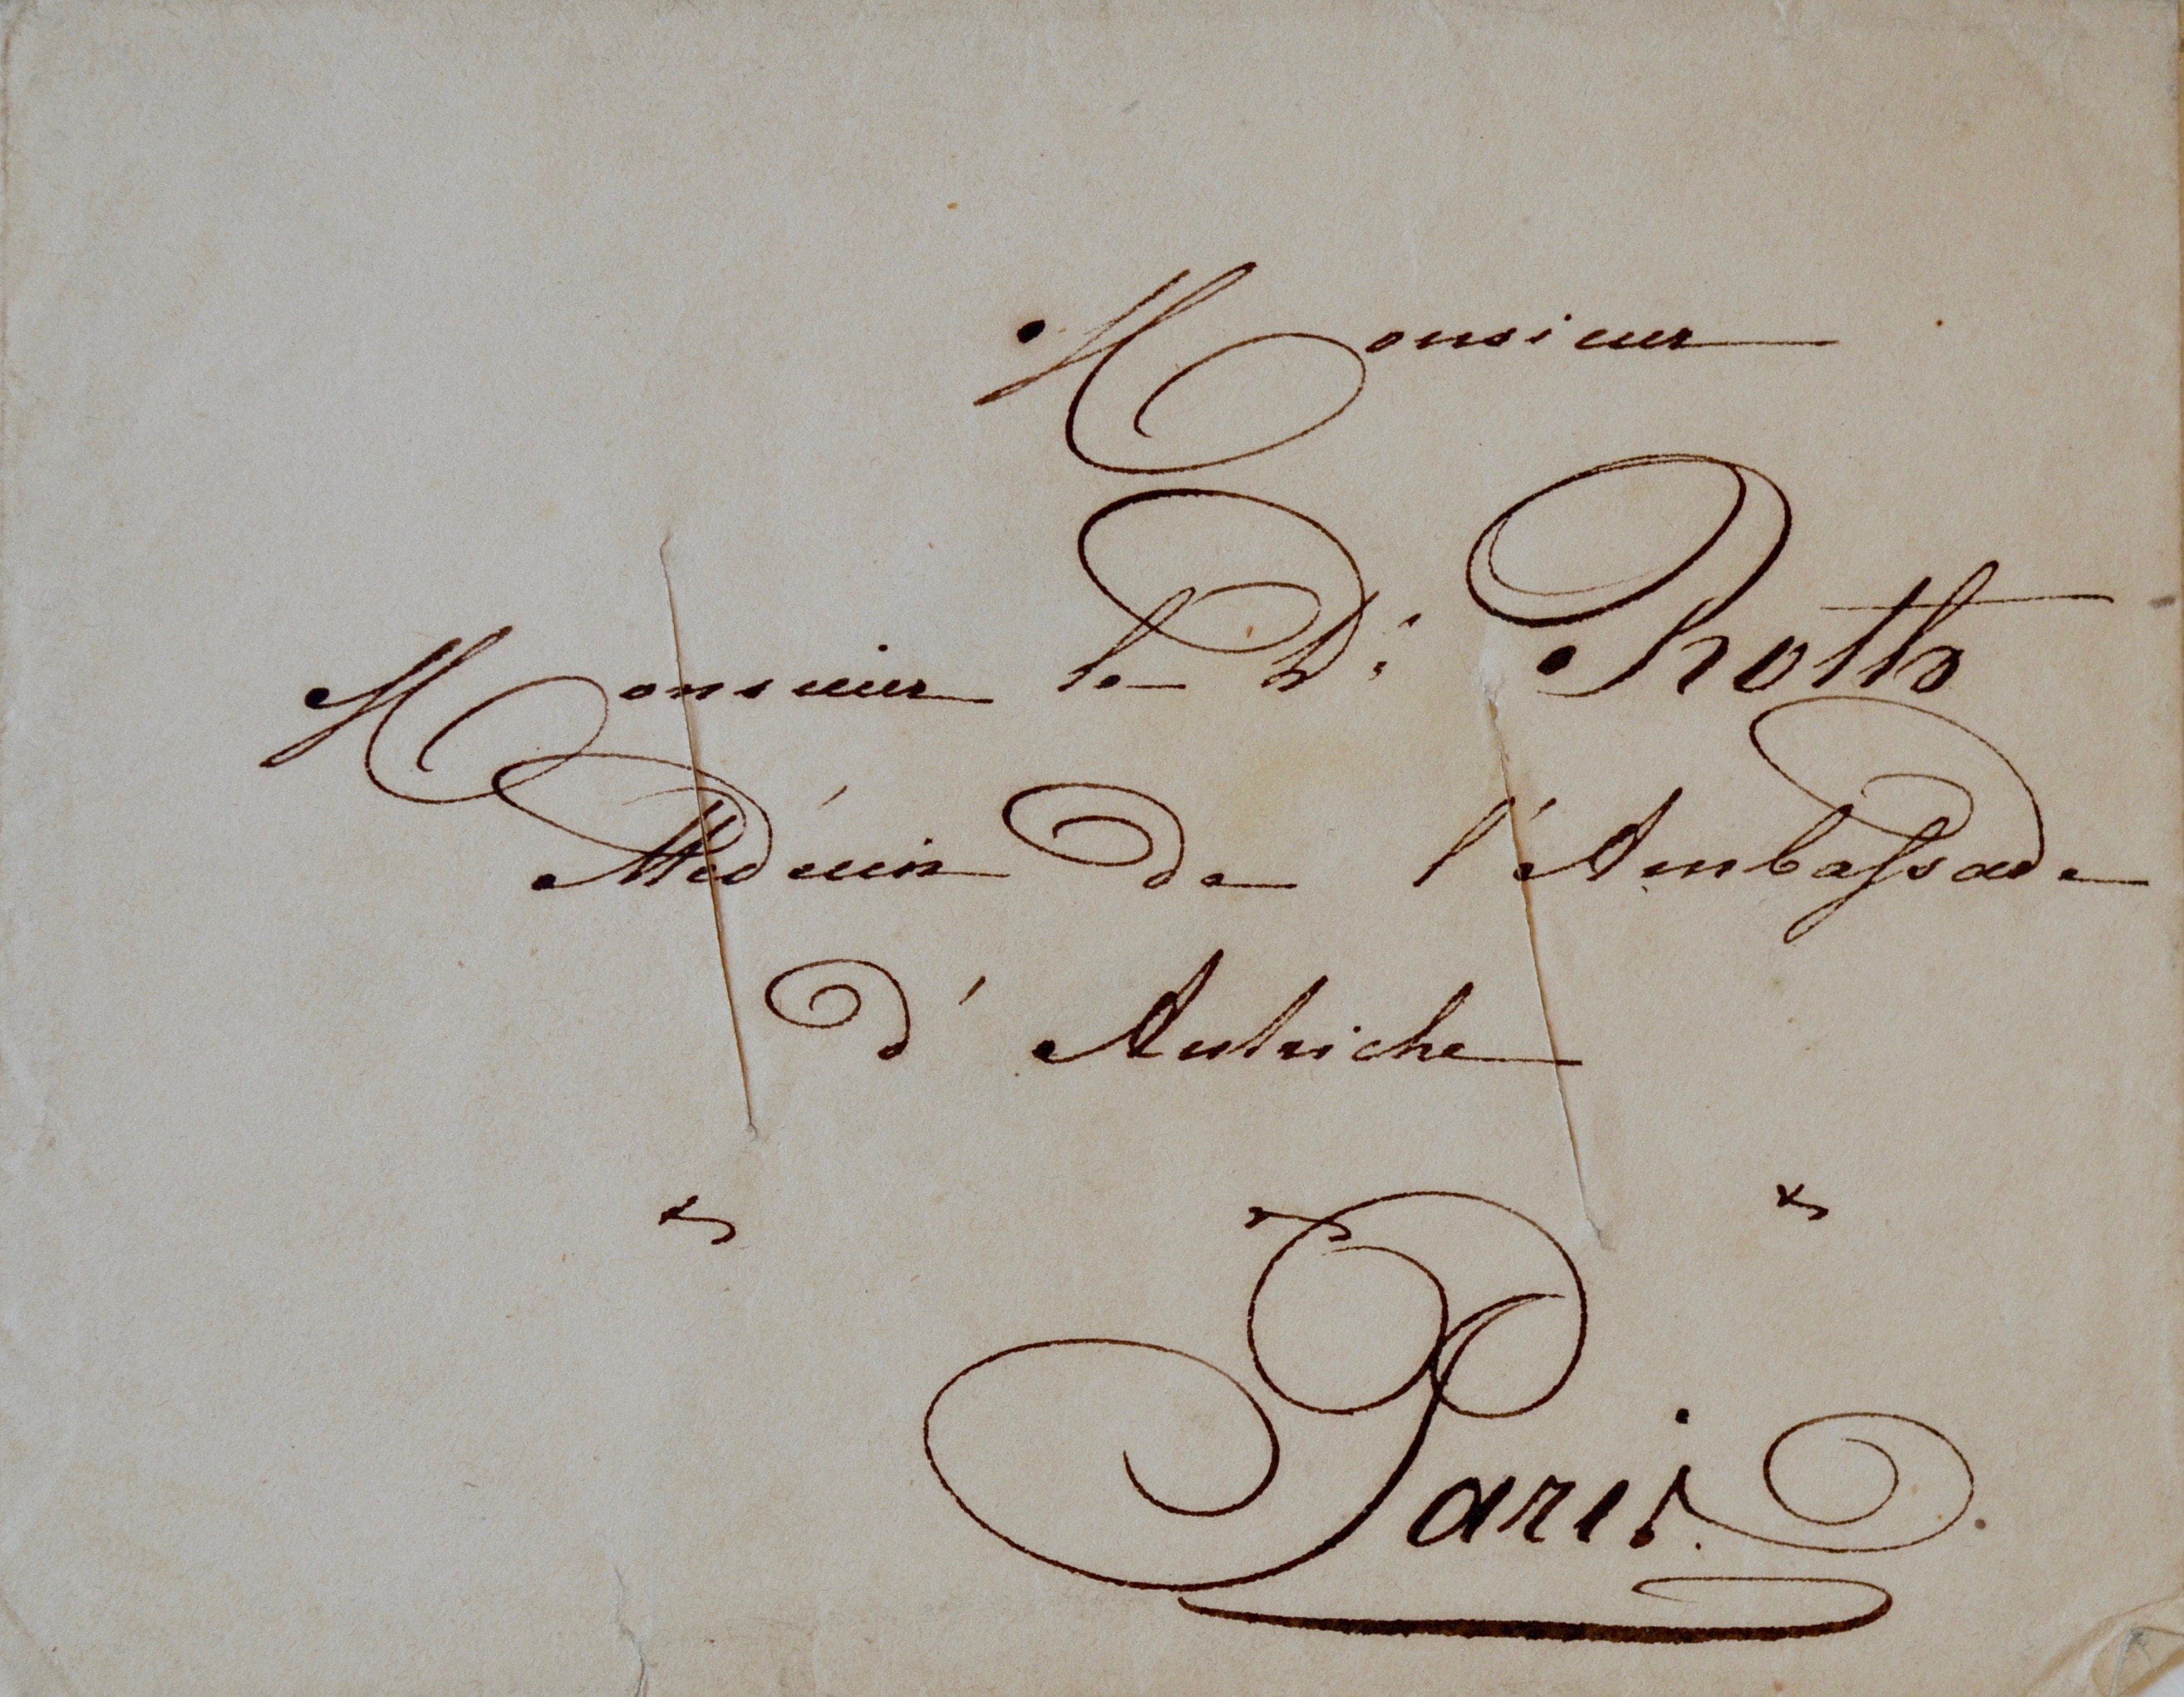 Monsieur
Monsieur le Dr Roth
Médecin de l'Ambassade
d'Autriche
Paris.